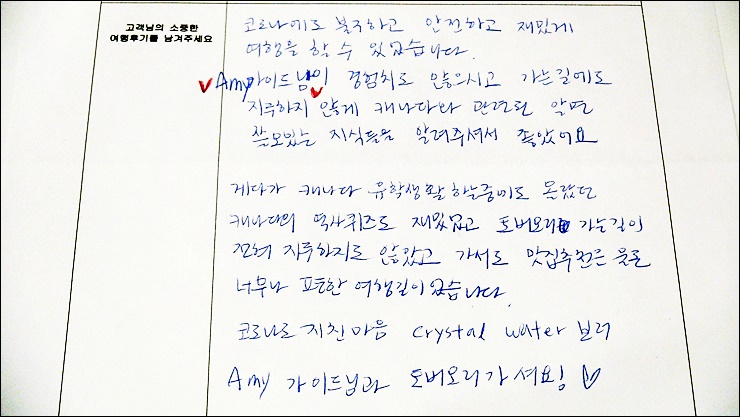 고객님의 소중한
여행후기를 남겨주세요
코로나에도 불구하고 안전하고 재밌게
여행을 할 수 있었습니다.
Amy가이드님이 경험치도 많으시고 가는길에도
지루하지 않게 캐나다와 관련된 알면
쓸모있는 지식들을 알려주셔서 좋았어요
게다가 캐나다 유학생활 하는중에도 몰랐던
캐나다의 역사퀴즈도 재밌었고 토버모리 가는길이
전혀 지루하지도 않았고 가서도 맛집추천은 물론
너무나 포근한 여행길이었습니다.
코로나로 지친마음 crystal water 보러
Amy 가이드님과 토버모리가셔요!